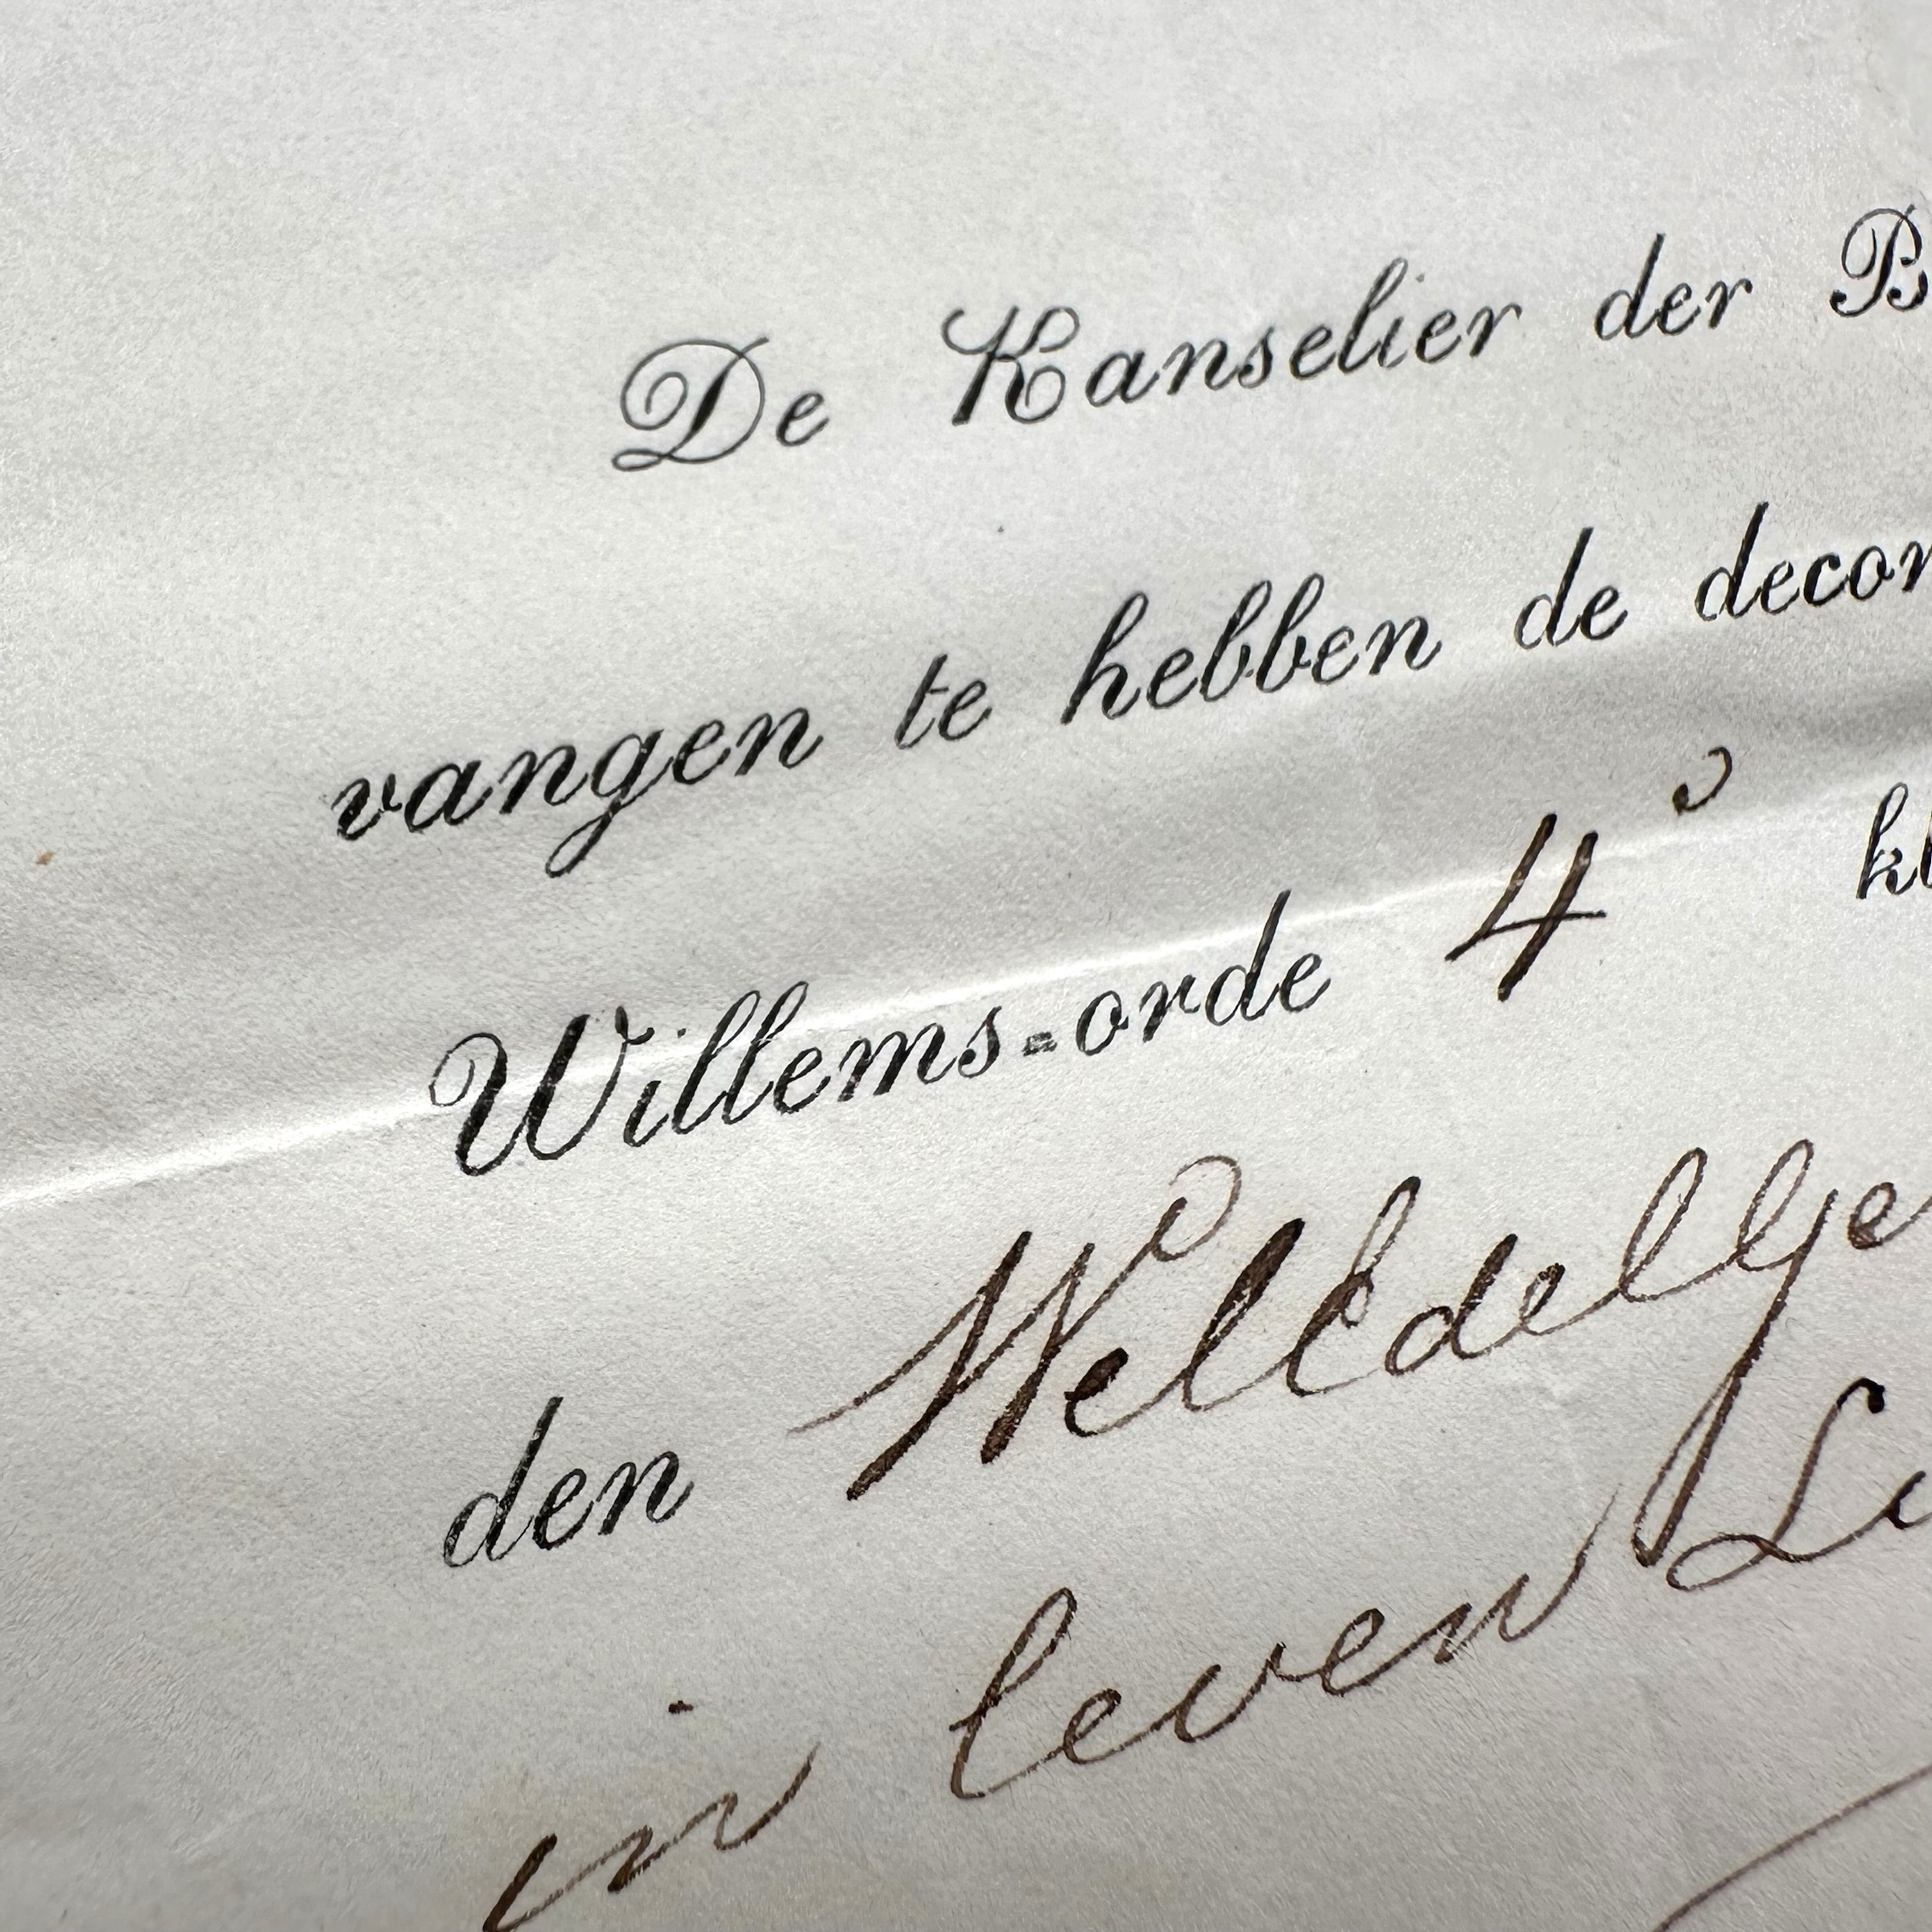 De Kanselier der B
vangen te hebben de decor
Willems-orde 4e kl
den WelEdelGe
in leven Lu